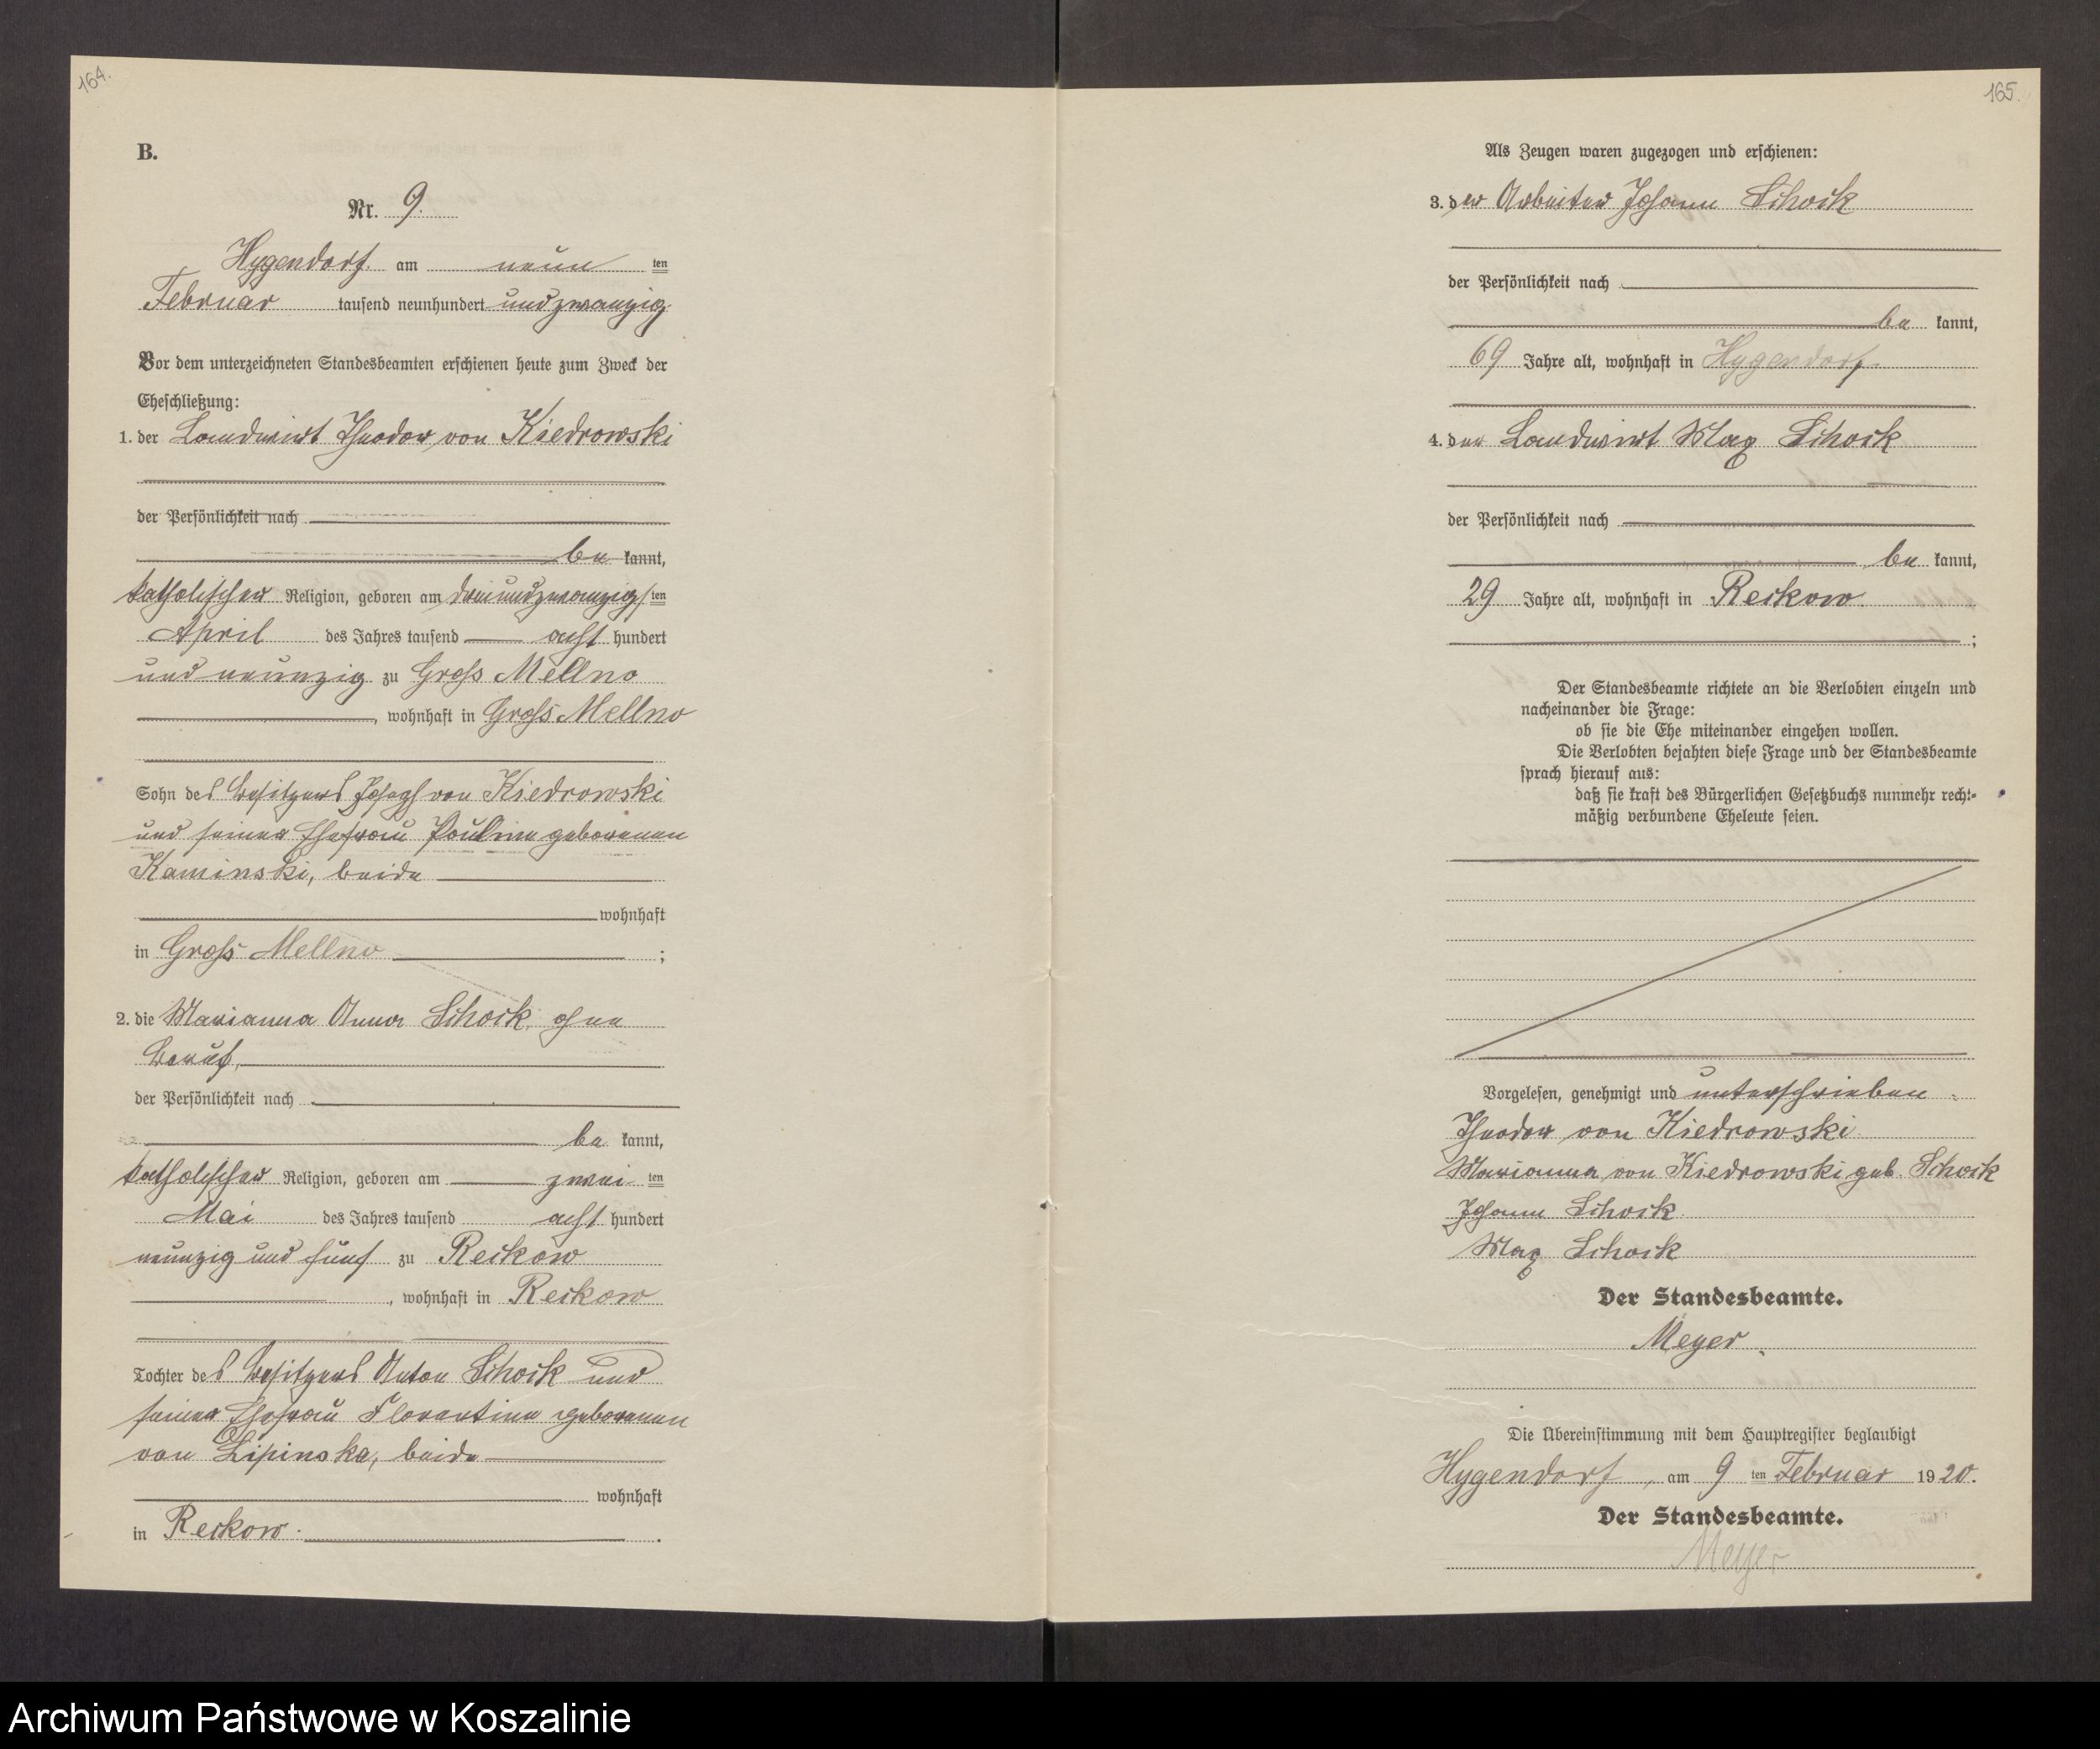 164.
B.
Nr. 9.
Hygendorf am neun ten
Februar tausend neunhundert und zwanzig
Vor dem unterzeichneten Standesbeamten erschienen heute zum Zweck der
Eheschließung:
1. der Landwirt Theodor von Kiedrowski
der Persönlichkeit nach
be kannt,
katholischer Religion, geboren am dreiundzwanzigsten
April des Jahres tausend acht hundert
und neunzig zu Gross Mellno
, wohnhaft in Gross Mellno
Sohn des Besitzers Joseph von Kiedrowski
und seiner Ehefrau Pauline geborenen
Kaminski, beide
wohnhaft
in Gross Mellno ;
2. die Marianna Anna Schock, ohne
Beruf,
der Persönlichkeit nach
be kannt,
katholischer Religion, geboren am zwei ten
Mai des Jahres tausend acht hundert
neunzig und fünf zu Reckow
, wohnhaft in Reckow
Tochter des Besitzers Anton Schock und
seiner Ehefrau Florentine geborenen
von Lipinska, beide
wohnhaft
in Reckow.
165.
Als Zeugen waren zugezogen und erschienen:
3. der Arbeiter Johann Schock
der Persönlichkeit nach
be kannt,
69 Jahre alt, wohnhaft in Hygendorf
4. der Landwirt Max Schock
der Persönlichkeit nach
be kannt,
29 Jahre alt, wohnhaft in Reckow
;
Der Standesbeamte richtete an die Verlobten einzeln und
nacheinander die Frage:
ob sie die Ehe miteinander eingehen wollen.
Die Verlobten bejahten diese Frage und der Standesbeamte
sprach hierauf aus:
daß sie kraft des Bürgerlichen Gesetzbuchs nunmehr recht-
mäßig verbundene Eheleute seien.
Vorgelesen, genehmigt und unterschrieben
Theodor von Kiedrowski
Marianna von Kiedrowski geb. Schock
Johann Schock
Max Schock
Der Standesbeamte.
Meyer.
Die Übereinstimmung mit dem Hauptregister beglaubigt
Hygendorf, am 9 ten Februar 1920.
Der Standesbeamte.
Meyer
Archiwum Państwowe w Koszalinie